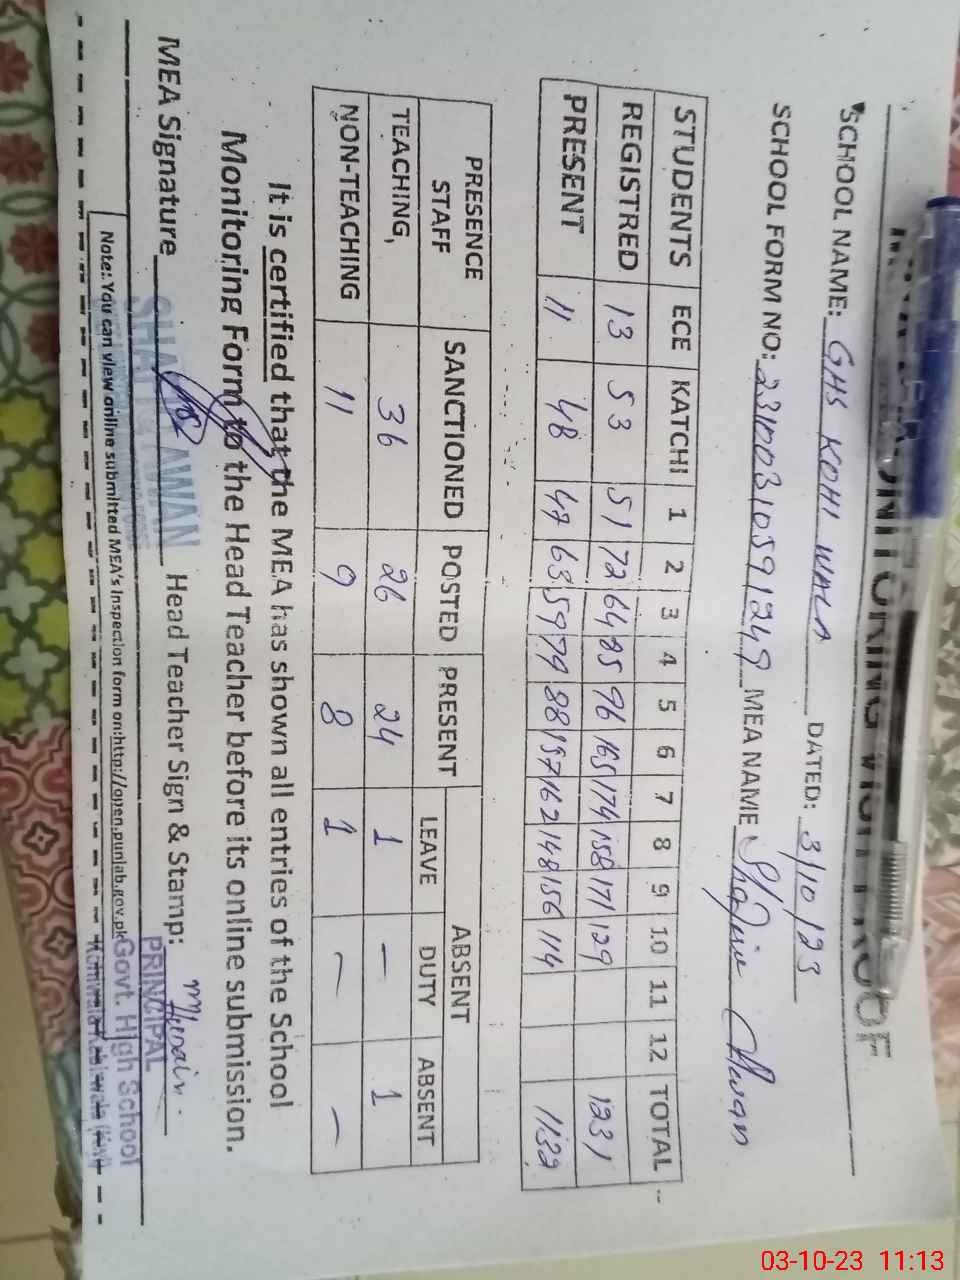 MONITORING VISIT PROOF
SCHOOL NAME: GHS KOHI WALA DATED: 3/10/23
SCHOOL FORM NO: 23100310591249 MEA NAME Awan
STUDENTS ECE KATCHI 1 2 3 4 5 6 7 8 9 10 11 12 TOTAL
REGISTRED 13 53 51 72 64 85 96 165 174 158 171 129 1231
PRESENT 11 48 47 63 59 79 88 157 162 148 156 114 1132
PRESENCE STAFF SANCTIONED POSTED PRESENT ABSENT
LEAVE DUTY ABSENT
TEACHING, 36 26 24 1 – 1
NON-TEACHING 11 9 8 1 – –
It is certified that the MEA has shown all entries of the School
Monitoring Form to the Head Teacher before its online submission.
MEA Signature Head Teacher Sign & Stamp:
AWAN
PRINCIPAL
Govt. High School
Note: You can view online submitted MEA's Inspection form on:http://open.punjab.gov.pk
03-10-23 11:13